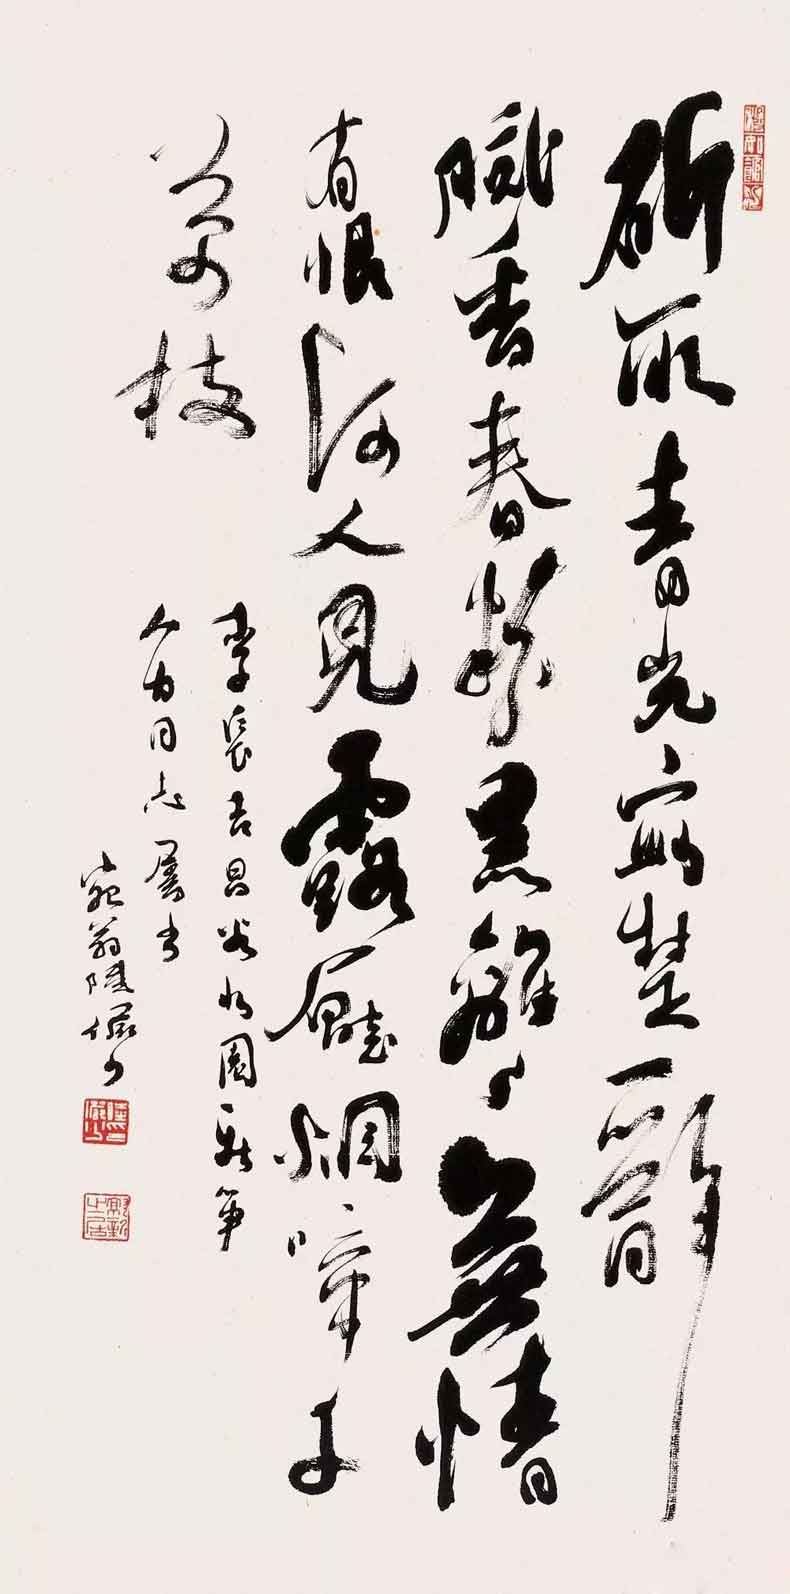 斫取青光寫楚辭
膩香春粉黑離々無情
有恨何人見露壓烟啼千
萬枝
李長吉昌谷北園新筍
同志屬書
宛翁陸儼少